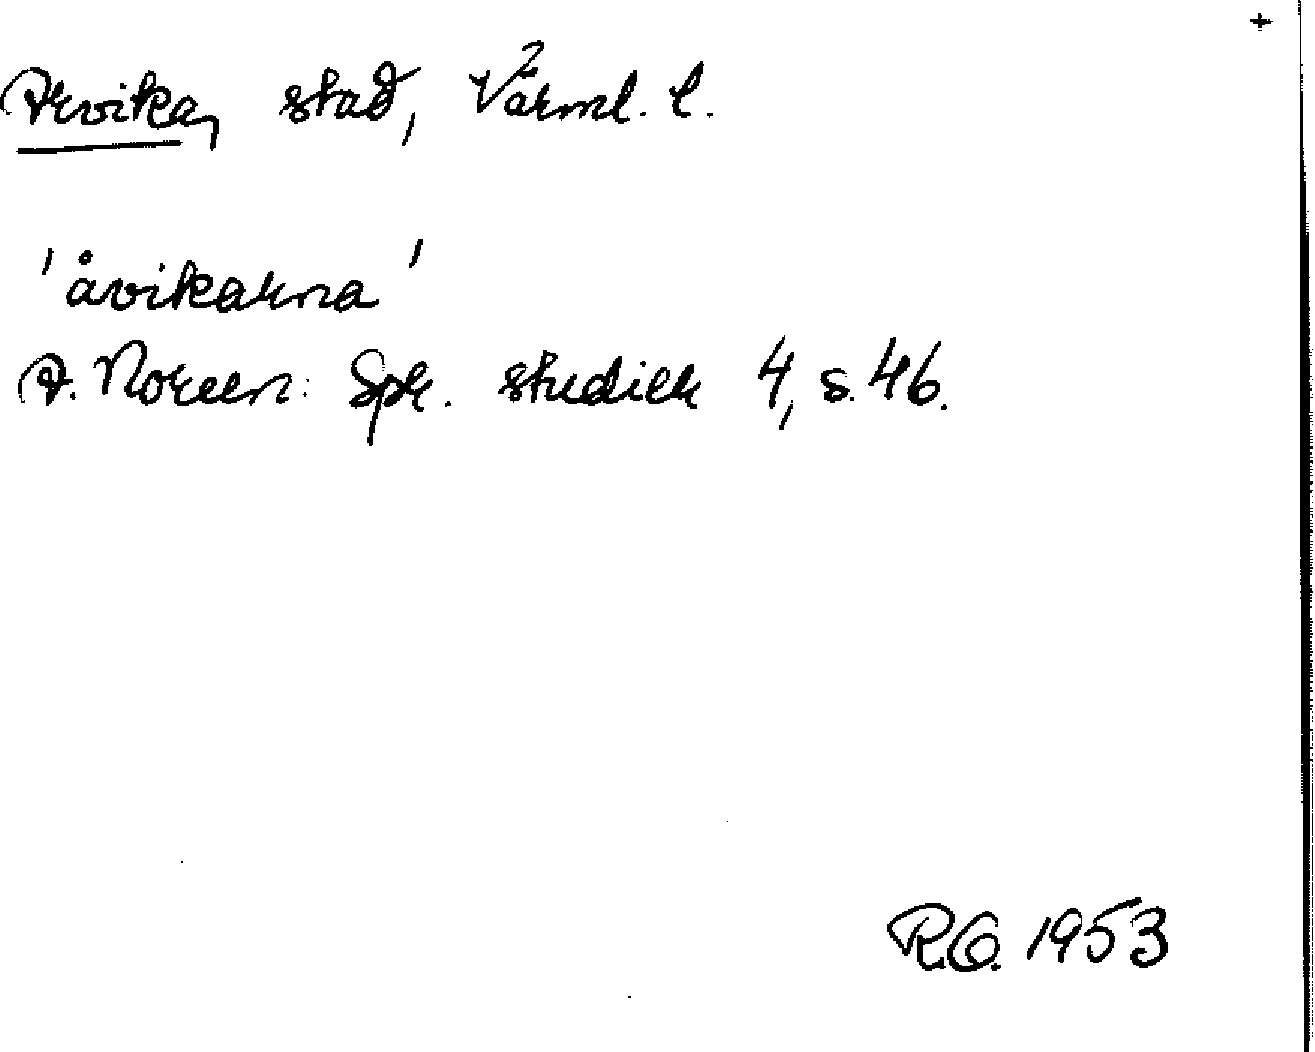 +
Arvika, stad, Värml. l.
'åvikarna'
A. Noreen: Spr. studier 4, s. 46.
R.G. 1953